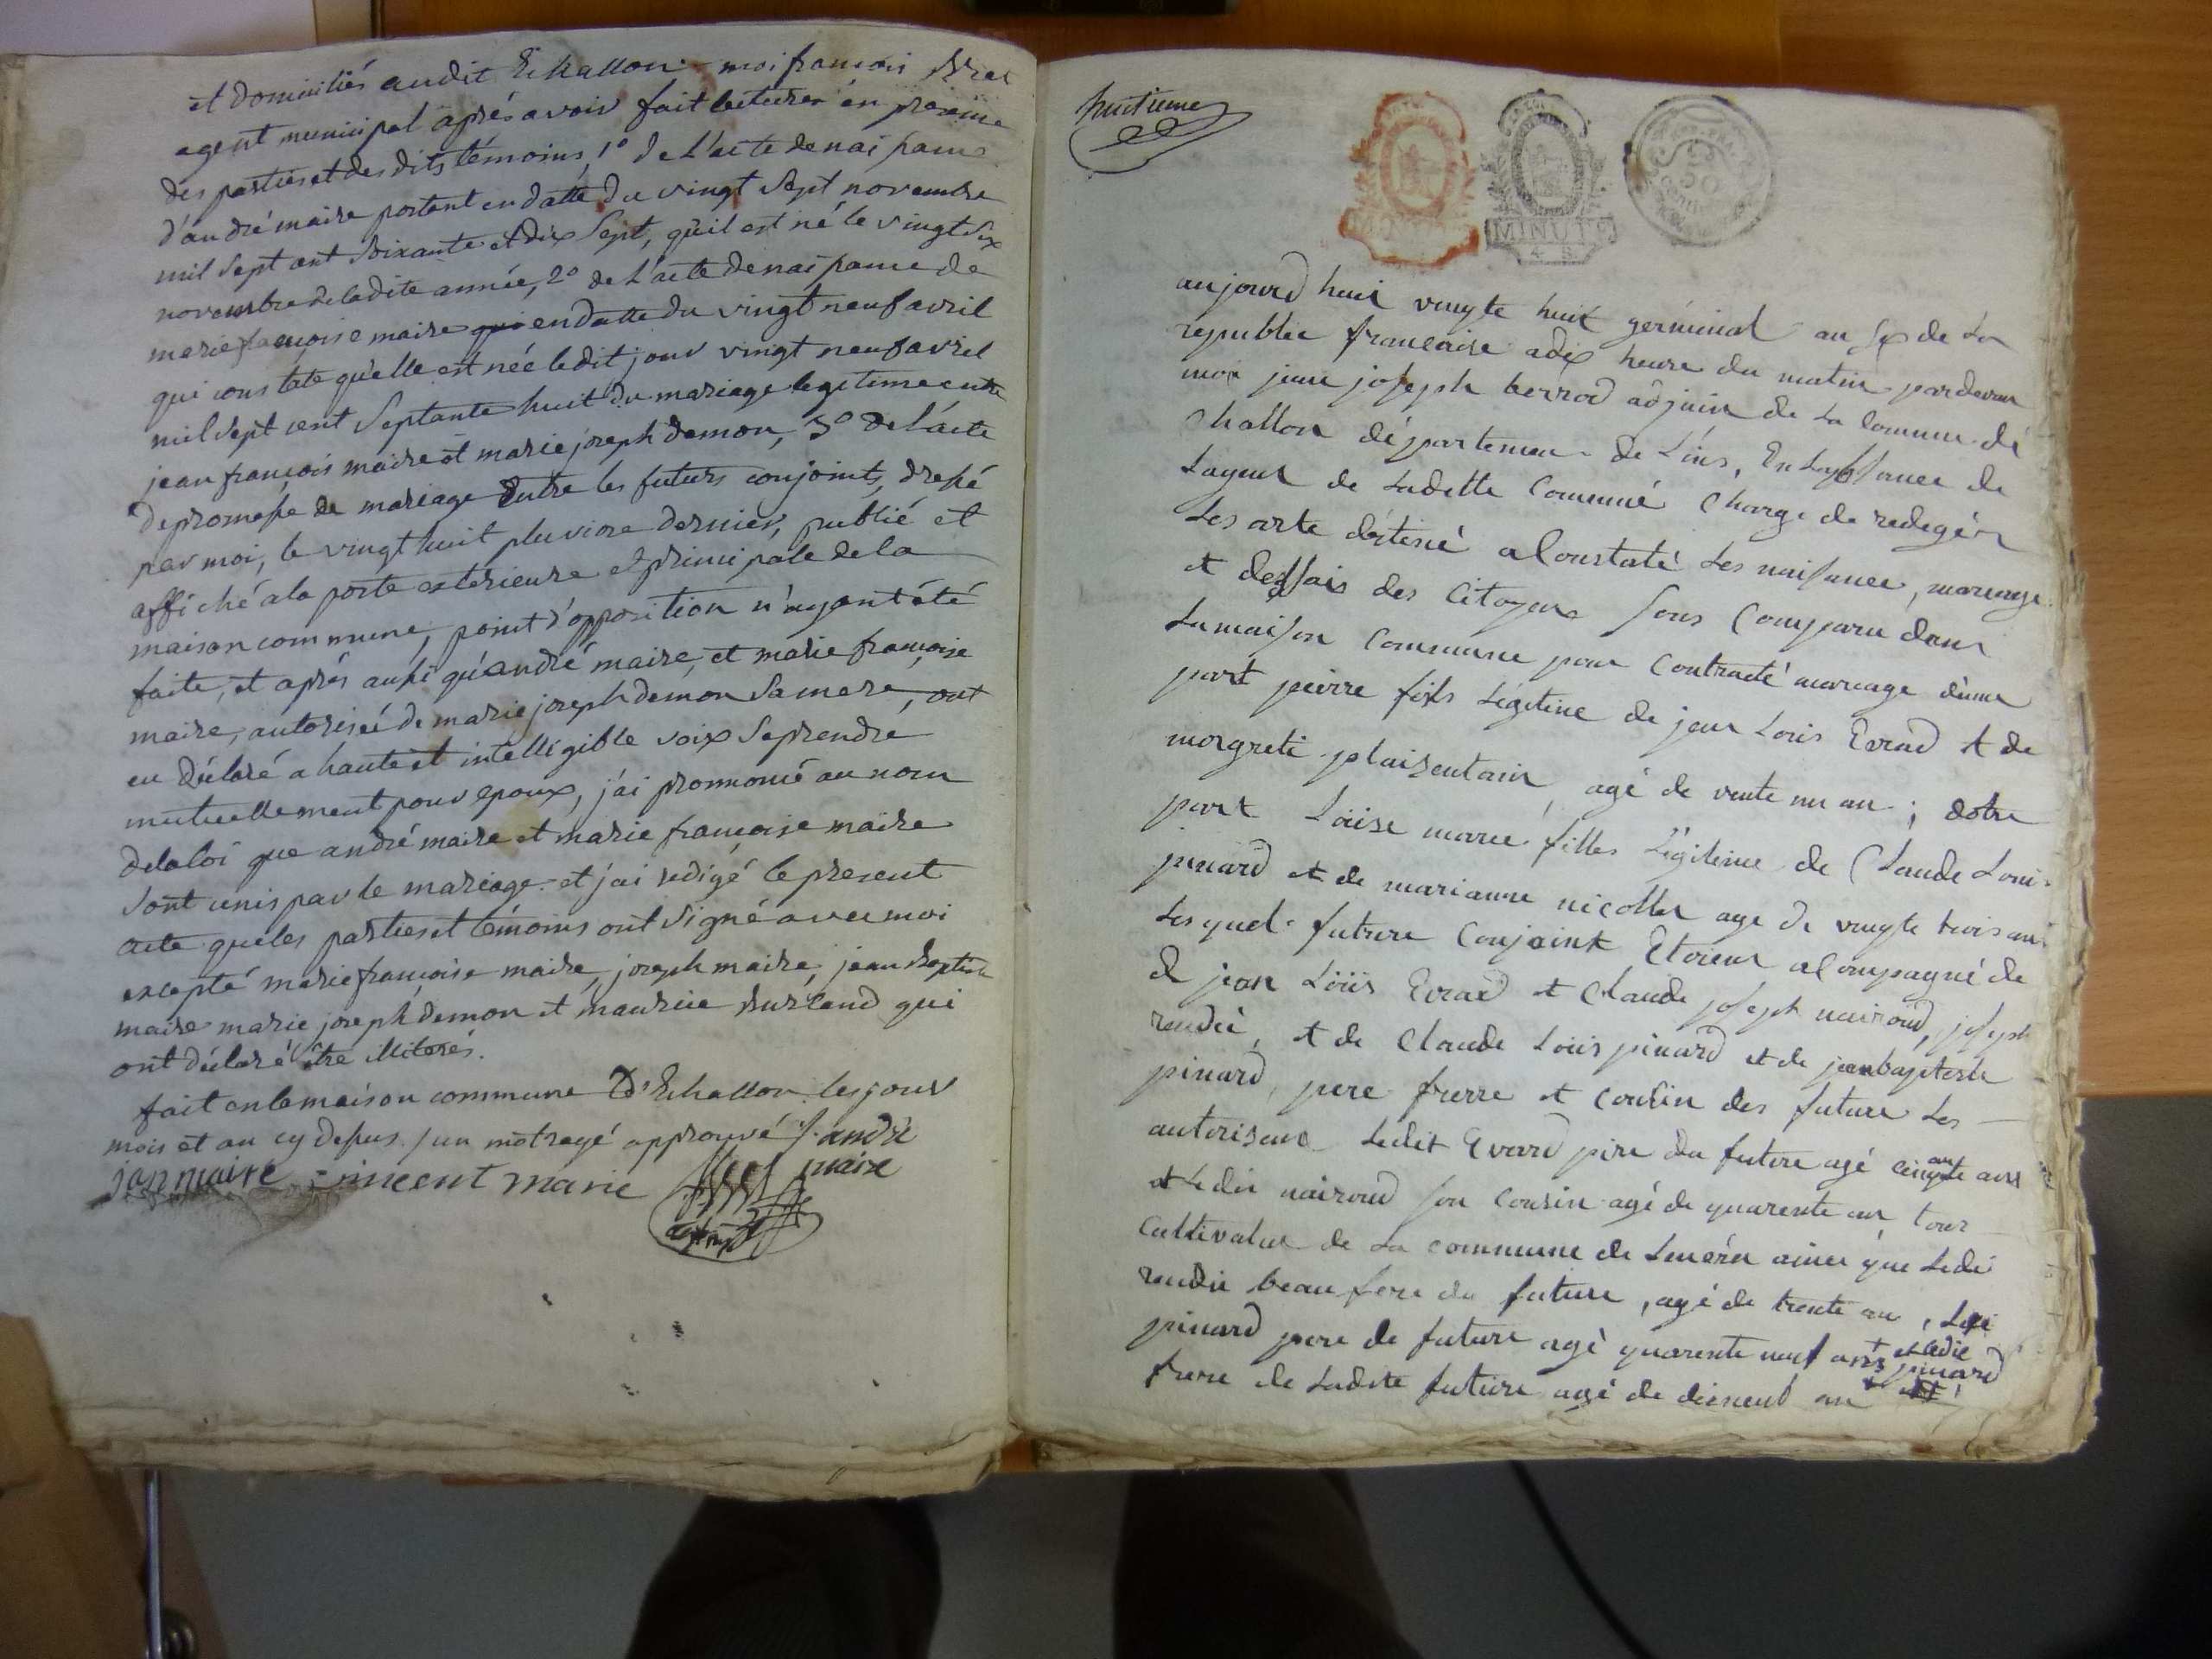 et domiciliés audit Echallon - moi françois
agent municipal aprés avoir fait lecture en presence
des parties et des dits témoins, 1° de L'acte de naissance
d'andré maire portant en datte du vingt sept novembre
mil sept cent soixante et dix sept, qu'il est né le vingt six
novembre de ladite année, 2° de L'acte de naissance de
marie françoise maire qui en datte du vingt neuf avril
qui constate qu'elle est née ledit jour vingt neuf avril
mil sept cent septante huit du mariage legitime entre
jean françois maire et marie joseph demon, 3° de l'acte
de promesse de mariage Entre les futurs conjoints, dressé
par moi, le vingt huit pluviose dernier, publié et
affiché a la porte exterieure et principale de la
maison commune, point d'opposition n'ayant été
faite, et aprés aussi qu'andré maire et marie françoise
maire, autorisée de marie joseph demon sa mere, ont
eu déclaré a haute et intelligible voix se prendre
mutuellement pour epoux, j'ai prononcé au nom
de la loi que andré maire et marie françoise maire
sont unis par le mariage et j'ai redigé le present
acte que les parties et témoins ont signé avec moi
excepté marie françoise maire, joseph maire, jean Baptiste
maire marie joseph demon et maurice Burland qui
ont déclaré être illiterés.
fait en la maison commune d'Echallon les jour
mois et an cy dessus / un mot rayé approuvé /. andré
jan maire vincent marie maire
huitieme
MINUTE
50
aujourd huit vingte huit germinal an six de La
republic francaise a dix heure du matin pardevan
moi jean joseph berrod adjoin de La Commune dé
Challon département de L'ins, En Labssance de
Lagent de Ladette Communé Charge de redegér
Les arte déstené a Constaté Les naissance, mariage
et dessais des Citoyen Sons Comparu dans
La maison Commune pour Contracté mariage dune
part pierre fils Légitime de jean Louis Evrad et de
morgreti plaisentain, agé de vente un an ; dotre
part Loüise marie filles Légiteme de Claude Loui
pinard et de marianne nicollet age de vingte trois an
Lesquel future Conjoint Etoient acompagné de
d jean Loüis Evrad et Claude joseph nairoud, joseph
rendié, et de Claude Loüis pinard et de jeanbapteste
pinard, pere frerre et cousin des future Les
autorisent Ledit Evard pere du future agé cinquante ans
et Ledit nairoud son Cousin agé de quarente an tous
Cultivateur de La commune de ainci que Ledi
rendié beau frere du future, agé de trente an, Ledi
pinard pere de future agé quarente neuf ans + et Ledit pinard
frere de Ladite future agé de diseneuf an